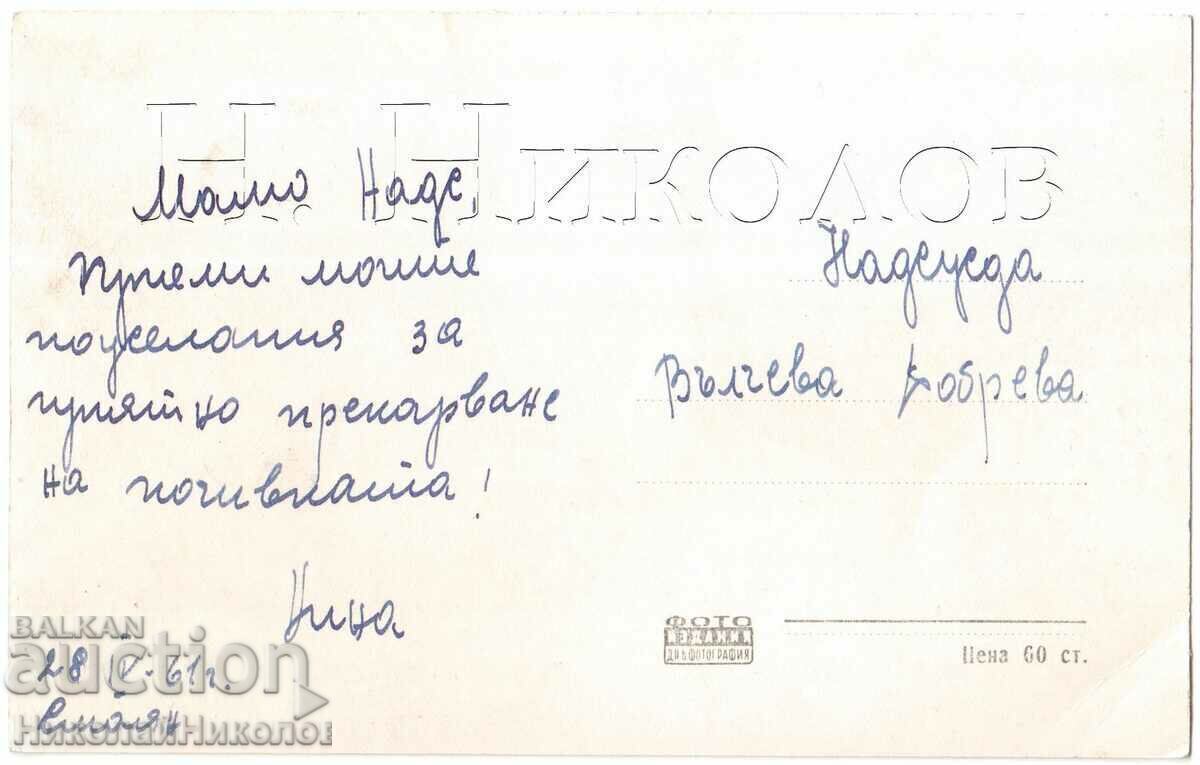 Н. НИКОЛОВ
Мамо Наде,
Приеми моите
пожелания за
приятно прекарване
на почивката!
Нина
28 IV. 61г.
Надежда
Вълчева Добрева
ФОТО
ДП ФОТОГРАФИЯ
Цена 60 ст.
BALKAN
auction
НиколайНиколов